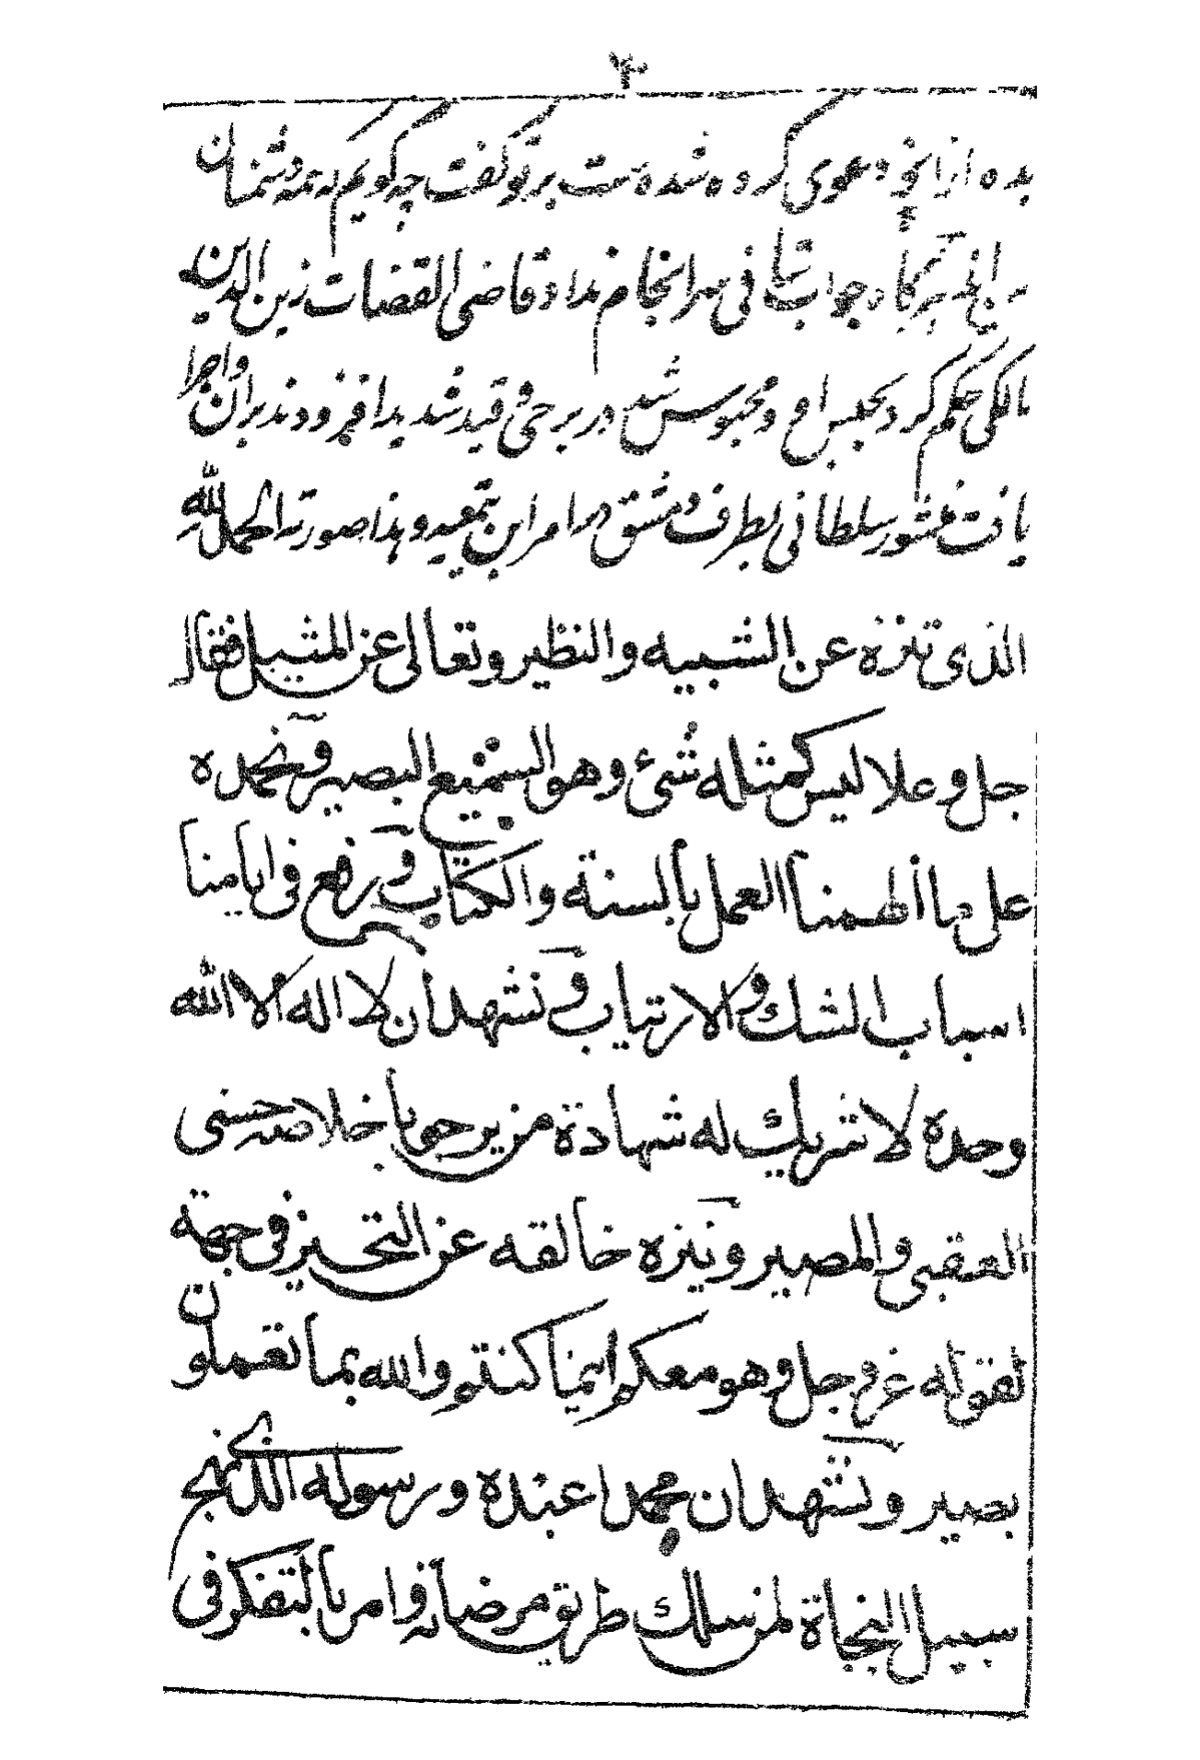 بده ازانچه دعوی کرده شده ست بر تو گفت چه گویم که همه دشمنان
من اند هرگاه جواب شافی سرانجام نداد قاضی القضات زین الدین
مالکی حکم کرد بحبس او و محبوس شد در برجی و قید شدید افزودند بران واجرا
یافت منشور سلطانی بطرف دمشق در امر ابن تیمیه وهذا صورته الحمد لله
الذی تنزه عن الشبیه والنظیر وتعالی عن المثیل فقال
جل وعلا لیس کمثله شئ وهو السمیع البصیر ونحمده
علی ما ألهمنا العمل بالسنة والکتاب ورفع فی ایامنا
اسباب الشك والارتیاب ونشهد ان لا اله الا الله
وحده لا شریك له شهادة من یرجو باخلاصه حسنی
العقبی والمصیر وینزه خالقه عن التحیز فی جهة
لقوله عز وجل وهو معکم اینما کنتم والله بما تعملون
بصیر ونشهد ان محمدا عبده ورسوله الذی نهج
سبیل النجاة لمن سلك طریق مرضاته وامر بالتفکر فی